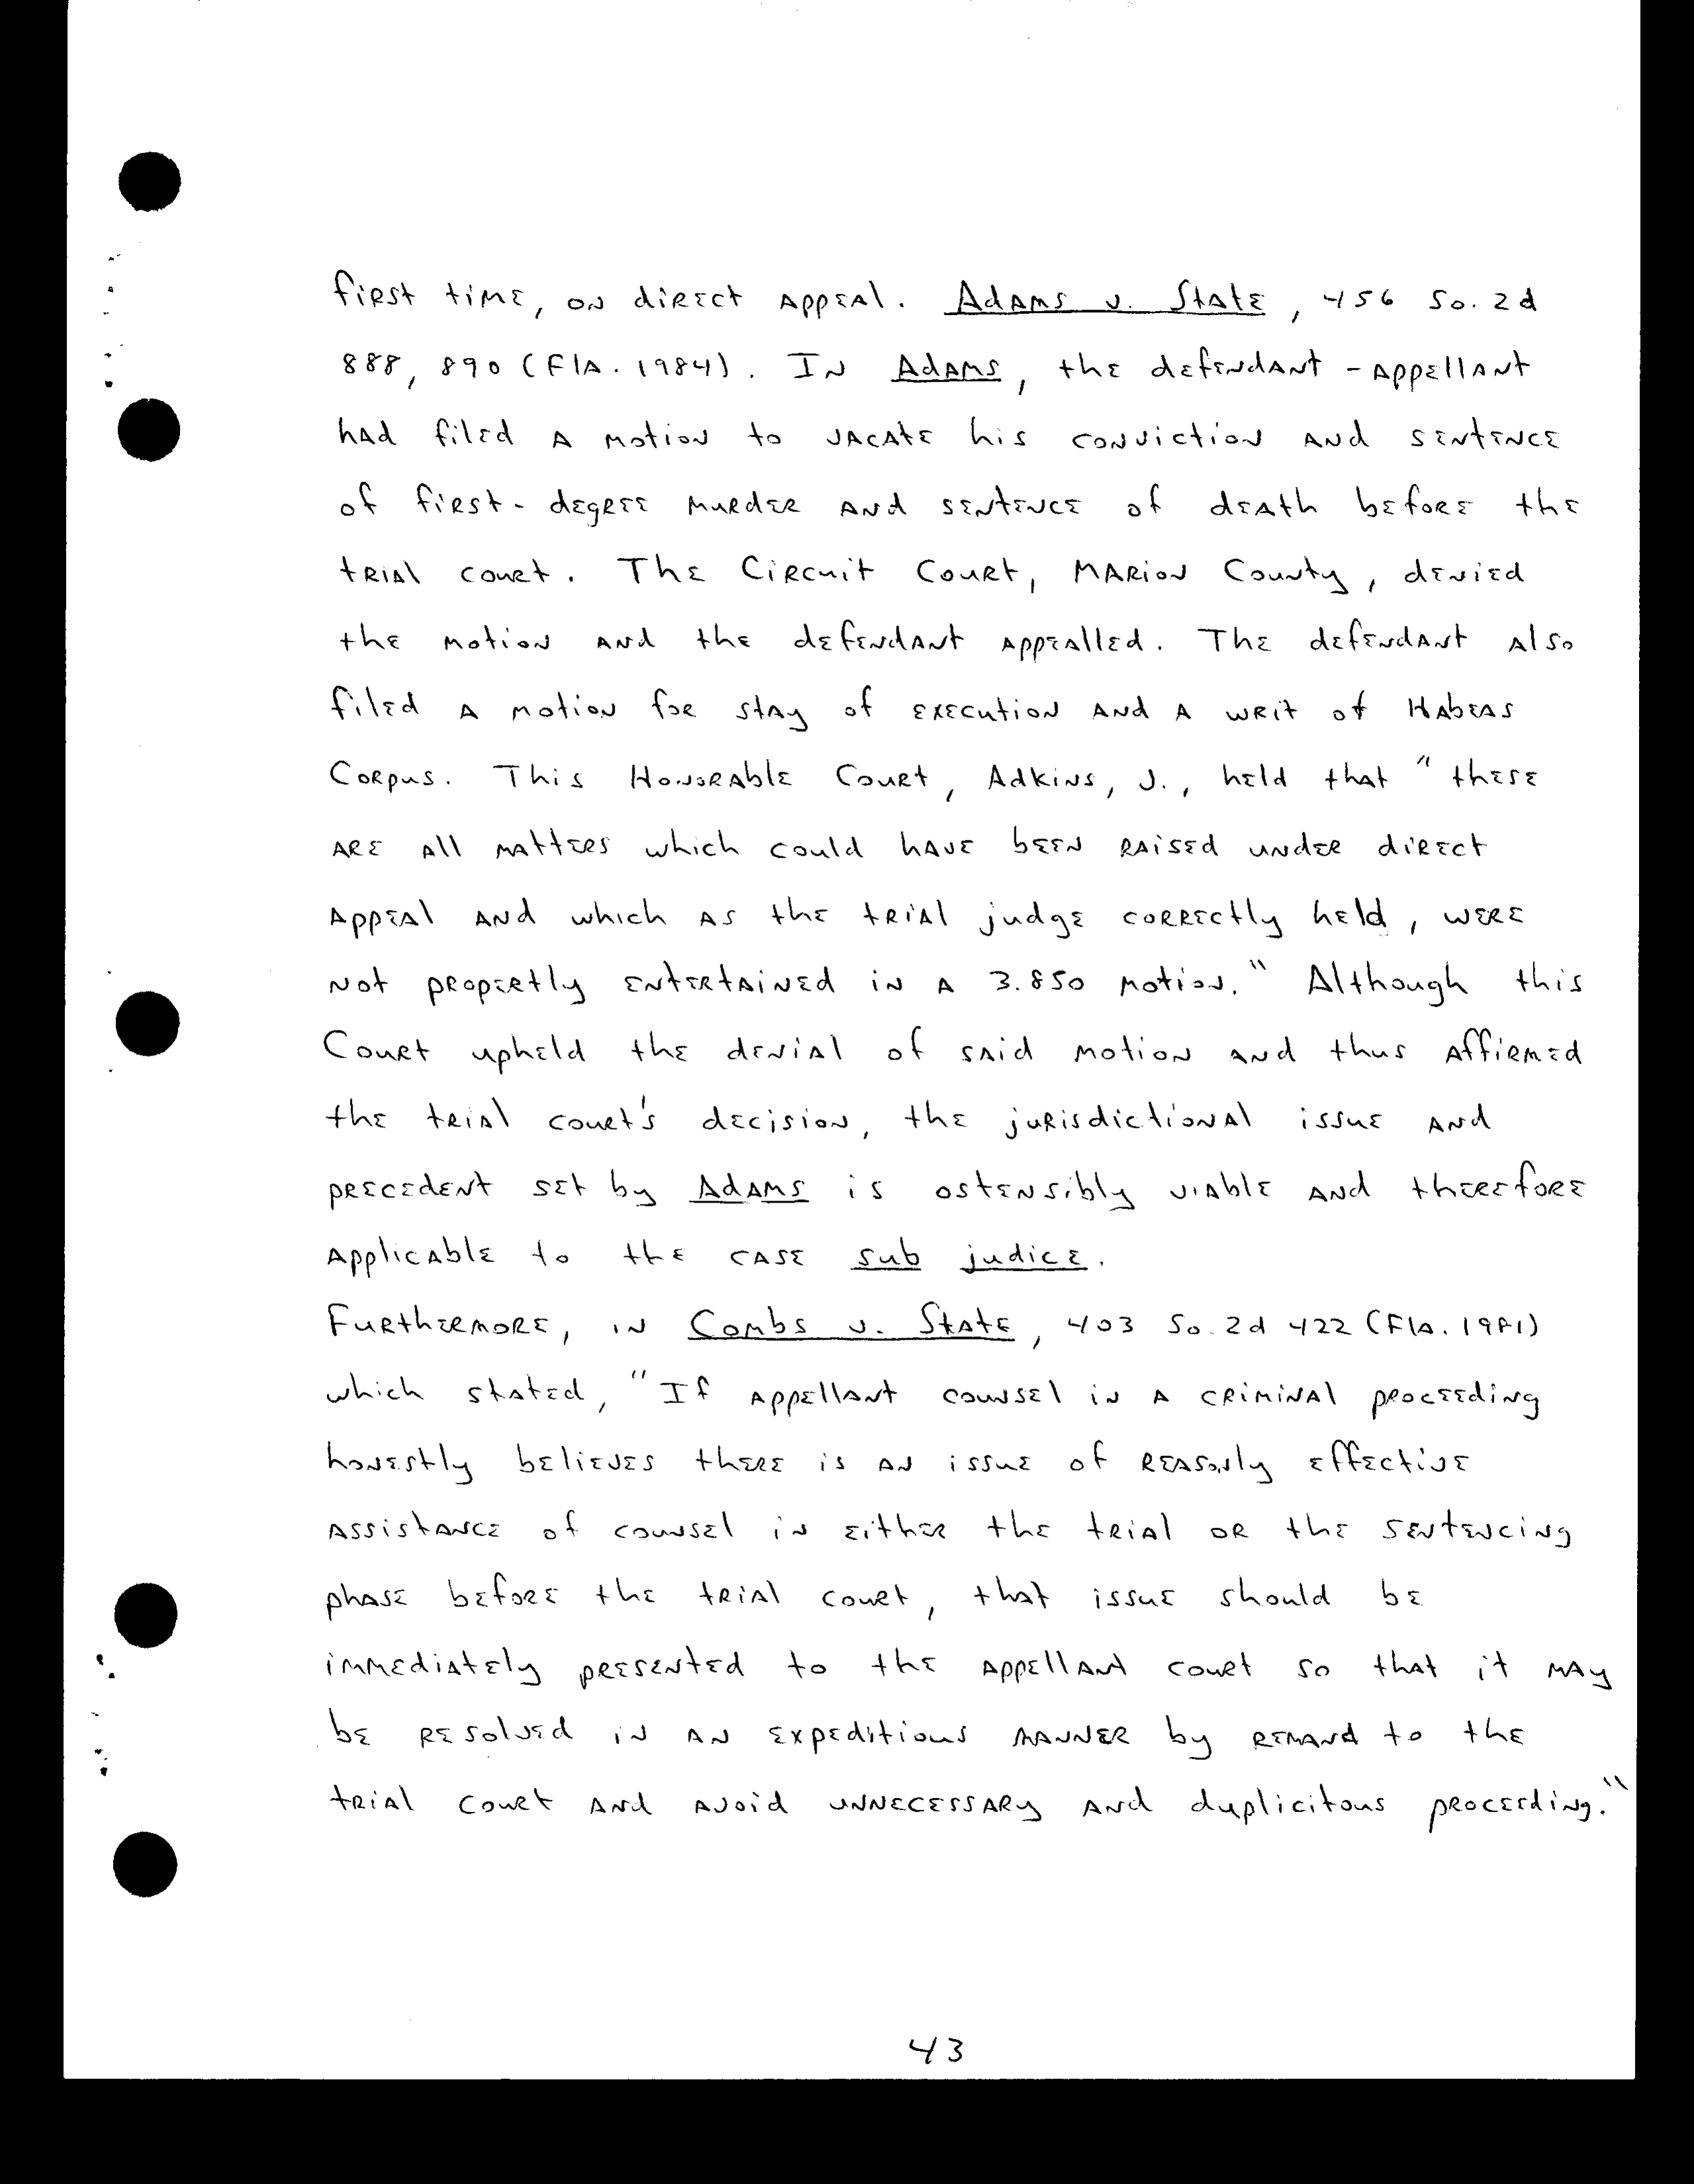 first time, on direct appeal. Adams v. State, 456 So. 2d
888, 890 (Fla. 1984). In Adams, the defendant - appellant
had filed a motion to vacate his conviction and sentence
of first-degree murder and sentence of death before the
trial court. The Circuit Court, Marion County, denied
the motion and the defendant appealled. The defendant also
filed a motion for stay of execution and a writ of Habeas
Corpus. This Honorable Court, Adkins, J., held that "these
are all matters which could have been raised under direct
appeal and which as the trial judge correctly held, were
not propertly entertained in a 3.850 motion." Although this
Court upheld the denial of said motion and thus affirmed
the trial court's decision, the jurisdictional issue and
precedent set by Adams is ostensibly viable and therefore
applicable to the case sub judice.
Furthermore, in Combs v. State, 403 So. 2d 422 (Fla. 1981)
which stated, "If appellant counsel in a criminal proceeding
honestly believes there is an issue of reasonly effective
assistance of counsel in either the trial or the sentencing
phase before the trial court, that issue should be
immediately presented to the appellant court so that it may
be resolved in an expeditious manner by remand to the
trial court and avoid unnecessary and duplicitous proceeding."
43